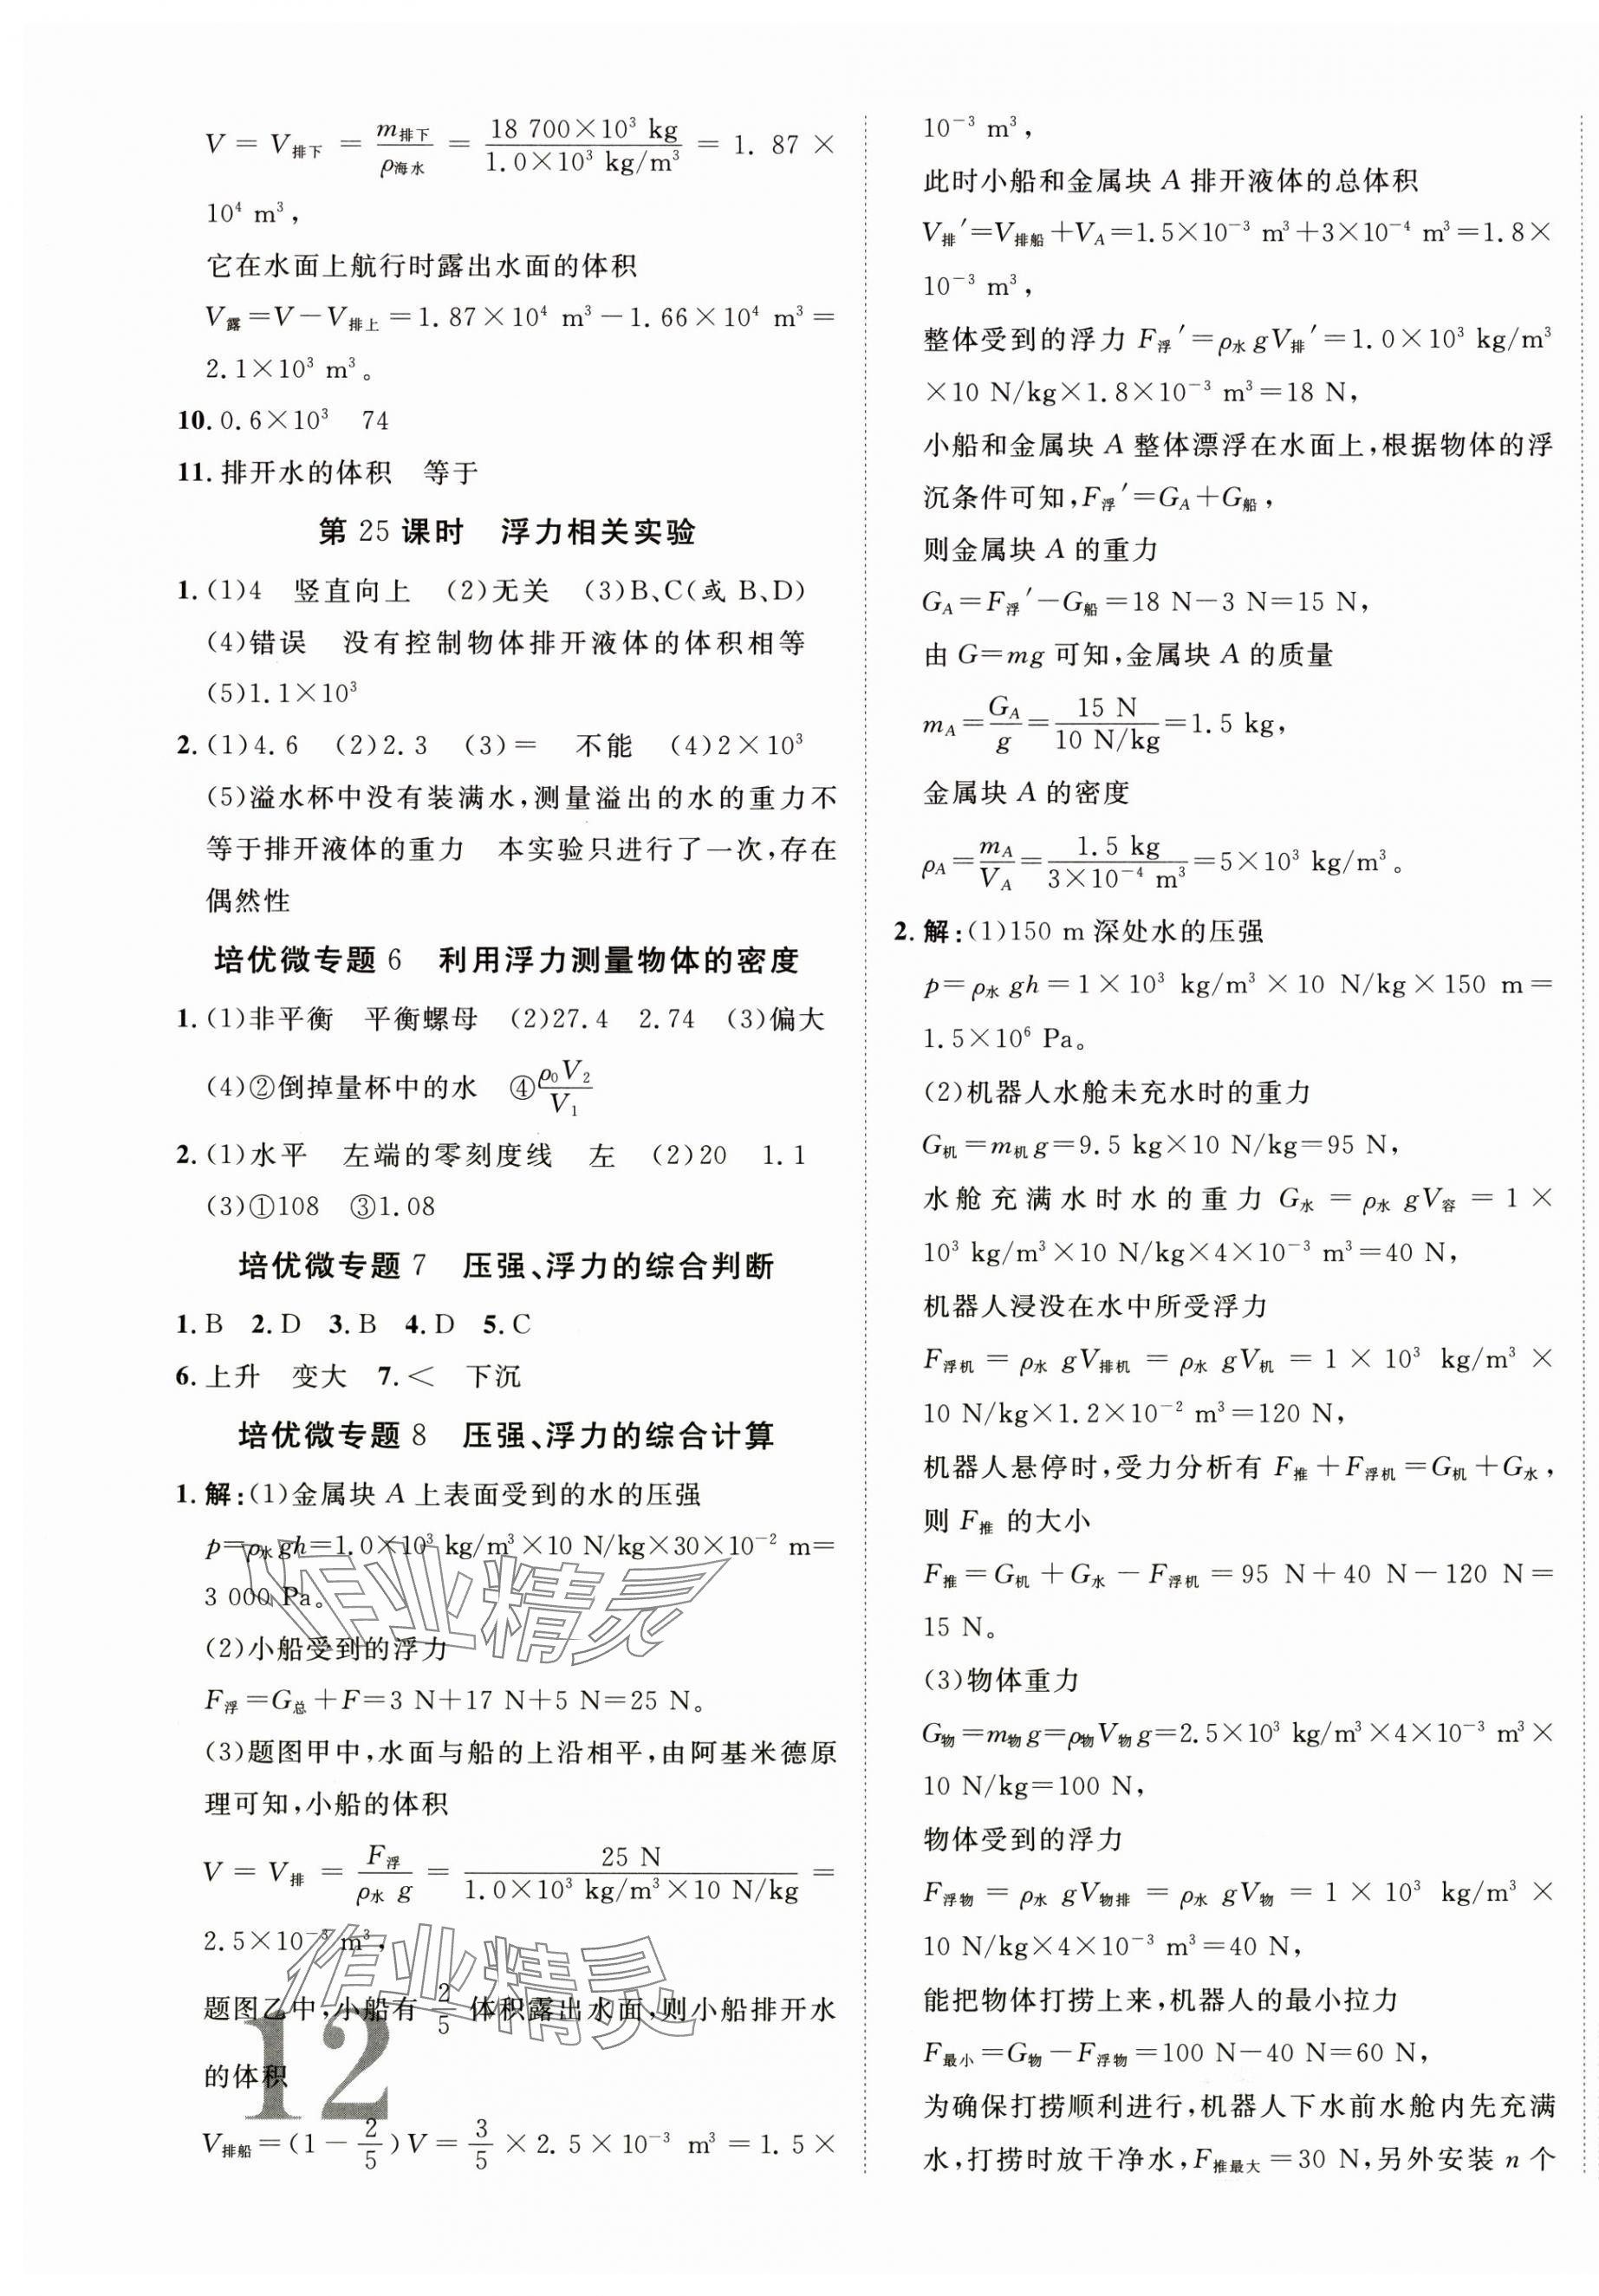 V=V排下=m排下/ρ海水=18 700×10³ kg/1.0×10³ kg/m³=1.87×
10⁴ m³,
它在水面上航行时露出水面的体积
V露=V-V排上=1.87×10⁴ m³-1.66×10⁴ m³=
2.1×10³ m³。
10.0.6×10³ 74
11.排开水的体积 等于
第25课时 浮力相关实验
1.(1)4 竖直向上 (2)无关 (3)B、C(或 B、D)
(4)错误 没有控制物体排开液体的体积相等
(5)1.1×10³
2.(1)4.6 (2)2.3 (3)= 不能 (4)2×10³
(5)溢水杯中没有装满水,测量溢出的水的重力不
等于排开液体的重力 本实验只进行了一次,存在
偶然性
培优微专题6 利用浮力测量物体的密度
1.(1)非平衡 平衡螺母 (2)27.4 2.74 (3)偏大
(4)②倒掉量杯中的水 ④ρ₀V₂/V₁
2.(1)水平 左端的零刻度线 左 (2)20 1.1
(3)①108 ③1.08
培优微专题7 压强、浮力的综合判断
1.B 2.D 3.B 4.D 5.C
6.上升 变大 7.< 下沉
培优微专题8 压强、浮力的综合计算
1.解:(1)金属块 A 上表面受到的水的压强
p=ρ水gh=1.0×10³ kg/m³×10 N/kg×30×10⁻² m=
3 000 Pa。
(2)小船受到的浮力
F浮=G总+F=3 N+17 N+5 N=25 N。
(3)题图甲中,水面与船的上沿相平,由阿基米德原
理可知,小船的体积
V=V排=F浮/ρ水g=25 N/1.0×10³ kg/m³×10 N/kg=
2.5×10⁻³ m³,
题图乙中,小船有2/5体积露出水面,则小船排开水
的体积
V排船=(1-2/5)V=3/5×2.5×10⁻³ m³=1.5×
作业精灵
作业精灵
12
10⁻³ m³,
此时小船和金属块 A 排开液体的总体积
V排′=V排船+V_A=1.5×10⁻³ m³+3×10⁻⁴ m³=1.8×
10⁻³ m³,
整体受到的浮力 F浮′=ρ水gV排′=1.0×10³ kg/m³
×10 N/kg×1.8×10⁻³ m³=18 N,
小船和金属块 A 整体漂浮在水面上,根据物体的浮
沉条件可知,F浮′=G_A+G船,
则金属块 A 的重力
G_A=F浮′-G船=18 N-3 N=15 N,
由 G=mg 可知,金属块 A 的质量
m_A=G_A/g=15 N/10 N/kg=1.5 kg,
金属块 A 的密度
ρ_A=m_A/V_A=1.5 kg/3×10⁻⁴ m³=5×10³ kg/m³。
2.解:(1)150 m深处水的压强
p=ρ水gh=1×10³ kg/m³×10 N/kg×150 m=
1.5×10⁶ Pa。
(2)机器人水舱未充水时的重力
G机=m机g=9.5 kg×10 N/kg=95 N,
水舱充满水时水的重力 G水=ρ水gV容=1×
10³ kg/m³×10 N/kg×4×10⁻³ m³=40 N,
机器人浸没在水中所受浮力
F浮机=ρ水gV排机=ρ水gV机=1×10³ kg/m³×
10 N/kg×1.2×10⁻² m³=120 N,
机器人悬停时,受力分析有 F推+F浮机=G机+G水,
则 F推 的大小
F推=G机+G水-F浮机=95 N+40 N-120 N=
15 N。
(3)物体重力
G物=m物g=ρ物V物g=2.5×10³ kg/m³×4×10⁻³ m³×
10 N/kg=100 N,
物体受到的浮力
F浮物=ρ水gV物排=ρ水gV物=1×10³ kg/m³×
10 N/kg×4×10⁻³ m³=40 N,
能把物体打捞上来,机器人的最小拉力
F最小=G物-F浮物=100 N-40 N=60 N,
为确保打捞顺利进行,机器人下水前水舱内先充满
水,打捞时放干净水,F推最大=30 N,另外安装 n 个